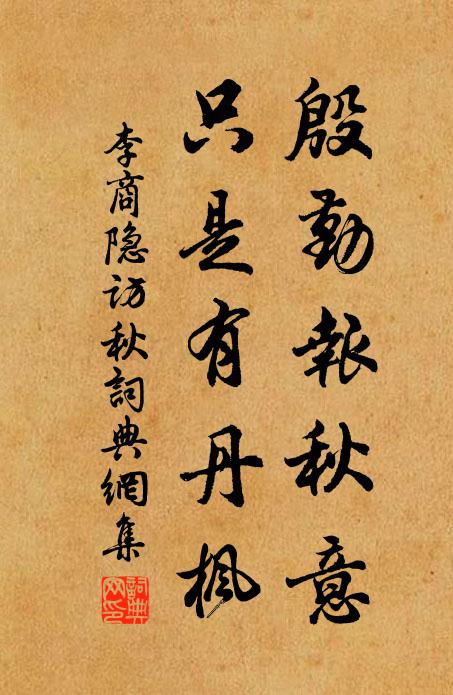 殷勤報秋意
只是有丹楓
李商隐访秋詞典網集
詞典
网印